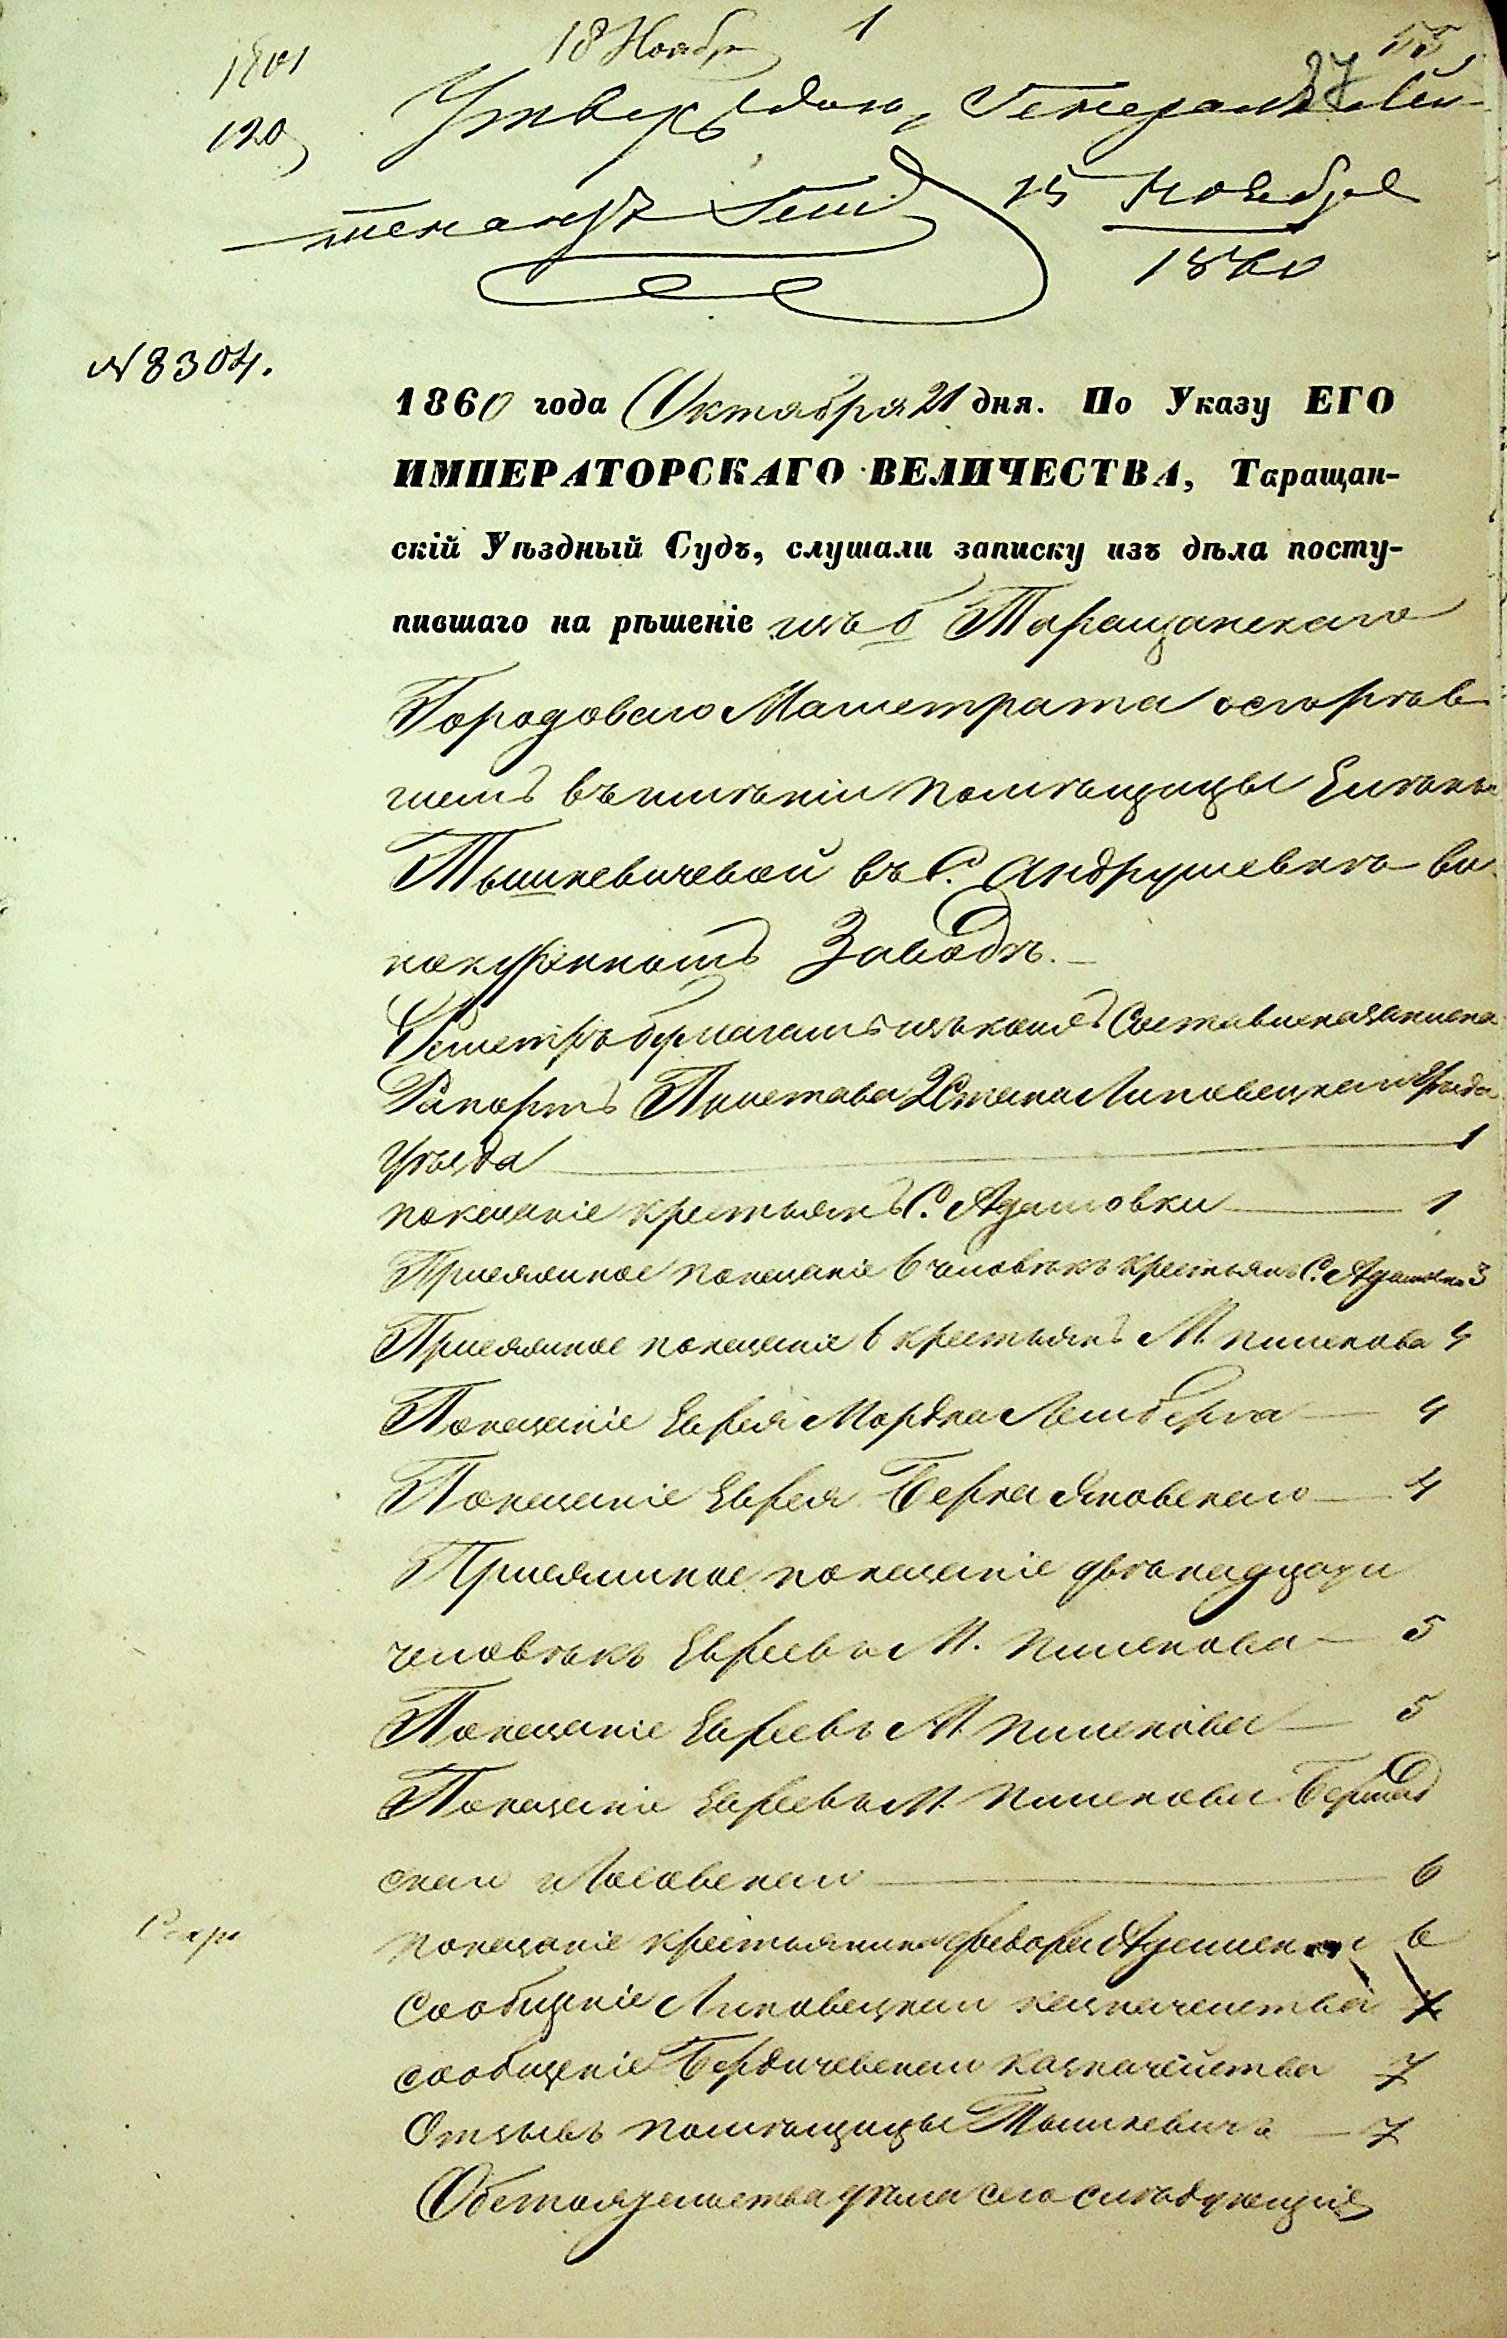 18 Ноябр 1
1801
120
37
Утверждаю, Генералъ Лей-
тенантъ Гессе 15 Ноября
1860
№ 8304.
1860 года Октября 21 дня. По Указу ЕГО
ИМПЕРАТОРСКАГО ВЕЛИЧЕСТВА, Таращан-
скій Уѣздный Судъ, слушали записку изъ дѣла посту-
пившаго на рѣшеніе изъ б Таращанскаго
Городоваго Магистрата о сгорѣв
шемъ въ имѣніи помѣщицы Елены
Тышкевичевой въ С. Андрушевкѣ ви
нокуренномъ Заводѣ.
Регистръ бумагамъ изъ коихъ Составлена записка
Рапортъ Пристава 2 Стана Липовецкаго Уѣзда
Уѣзда 1
показаніе крестьянъ С. Адамовки 1
Присяжное показаніе 6 человѣкъ крестьянъ С. Адамовки 3
Присяжное показаніе 6 крестьянъ М. Пискова 4
Показаніе Еврея Мордка Лемберга 4
Показаніе Еврея Берка Яновскаго 4
Присяжное показаніе двѣнадцати
человѣкъ Евреевъ М. Пискова 5
Показаніе Евреевъ М. Пискова 5
Показаніе Евреевъ М. Пискова
скаго и Лосовскаго 6
показаніе крестьянина Федора 6
Сообщеніе Липовецкаго казначейства
сообщеніе Бердичевскаго казначейства 7
Отзывъ помѣщицы Тышкевичъ 7
Обстоятельства дѣла сего слѣдующія